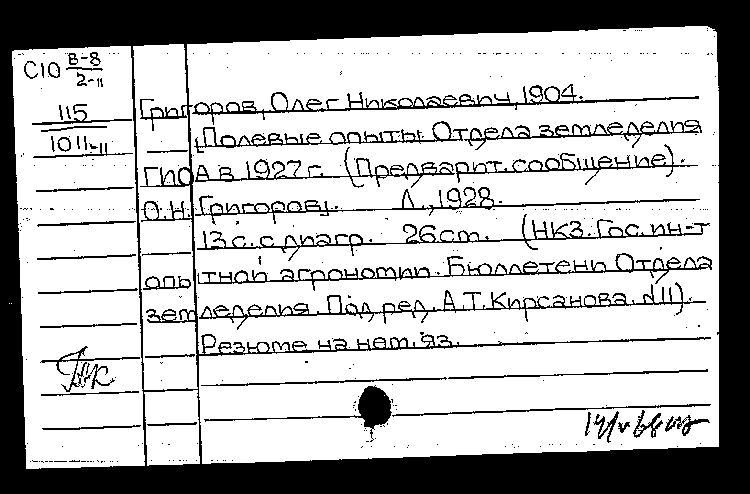 С10 В-8/2-11
115
1011-11
Григоров, Олег Николаевич, 1904.
Полевые опыты Отдела земледелия
ГИОА в 1927 г. (Предварит. сообщение).
О.Н. Григоровı. Л., 1928.
13 с. с диагр. 26 см. (НКЗ. Гос. ин-т
опытной агрономии. Бюллетени Отдела
земледелия. Под ред. А.Т. Кирсанова. №11).
Резюме на нем. яз.